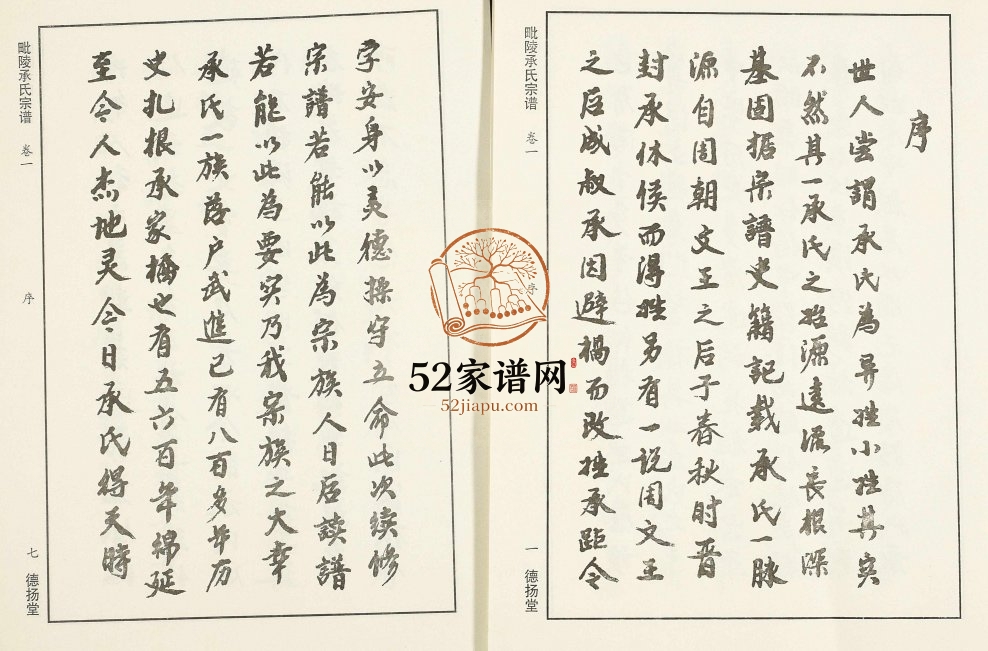 毗陵承氏宗谱 卷一
序
一 德扬堂
序
世人尝谓承氏为异姓小姓其实
不然其一承氏之始源远流长根深
基固据宗譜史籍記载承氏一脉
源自周朝文王之后于春秋时晋
封承休侯而得姓另有一说周文王
之后成叔承因避祸而改姓承距今
毗陵承氏宗谱 卷一
序
七 德扬堂
字安身以灵德操守立命此次续修
宗譜若能以此为宗族人日后读譜
若能以此為要实乃我宗族之大幸
承氏一族落户武進已有八百多年历
史扎根承家桥也有五六百年綿延
至今人杰地灵今日承氏得天時
52家谱网
52jiapu.com